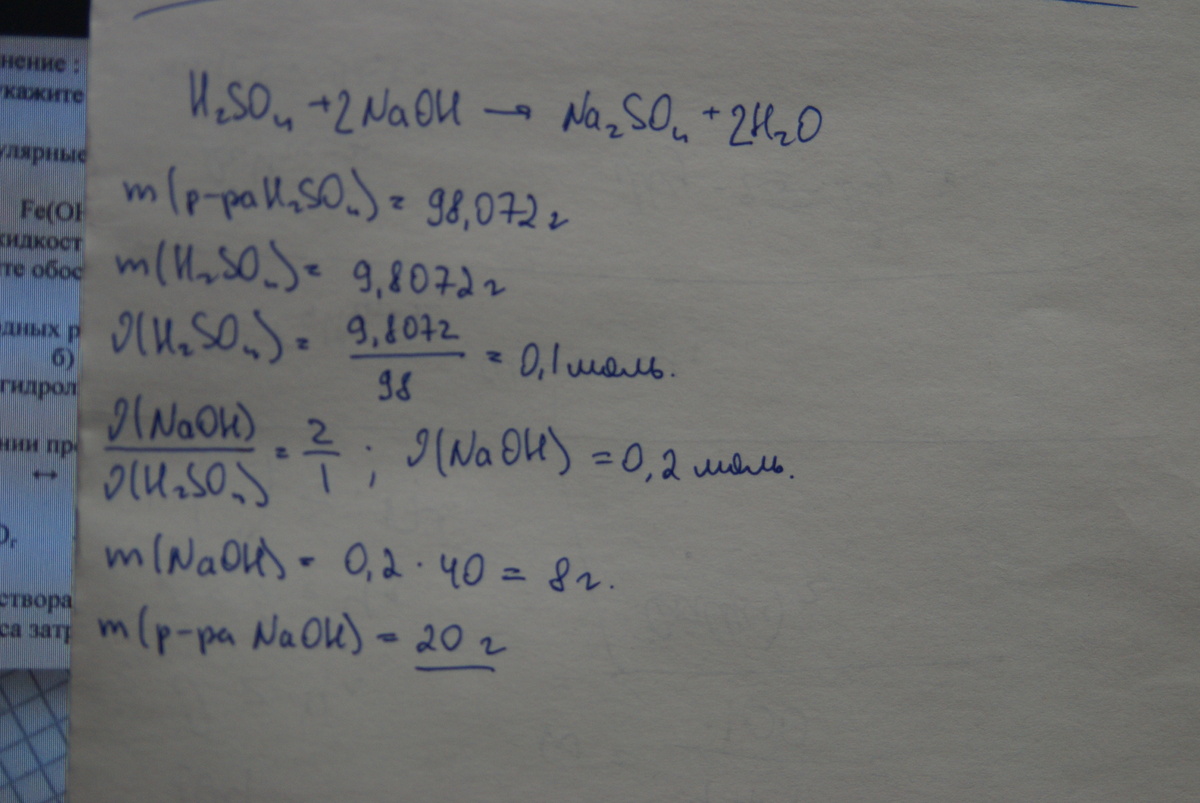 нение :
кажите
улярные
Fe(OH
жидкост
те обос
дных р
б)
гидрол
нии пр
↔
створа
са затр
H₂SO₄ + 2NaOH → Na₂SO₄ + 2H₂O
m(р-ра H₂SO₄) = 98,072 г
m(H₂SO₄) = 9,8072 г
ν(H₂SO₄) = 9,8072 / 98 = 0,1 моль.
ν(NaOH) / ν(H₂SO₄) = 2 / 1 ; ν(NaOH) = 0,2 моль.
m(NaOH) = 0,2 · 40 = 8 г.
m(р-ра NaOH) = 20 г